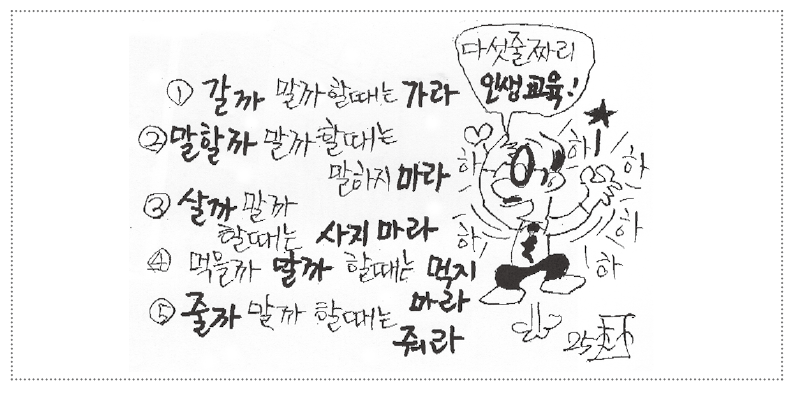 다섯줄짜리
인생교육!
① 갈까 말까 할때는 가라
② 말할까 말까 할때는
말하지 마라
③ 살까 말까
할때는 사지 마라
④ 먹을까 말까 할때는 먹지
마라
⑤ 줄까 말까 할때는
줘라
하
하
하
하
하
하
25